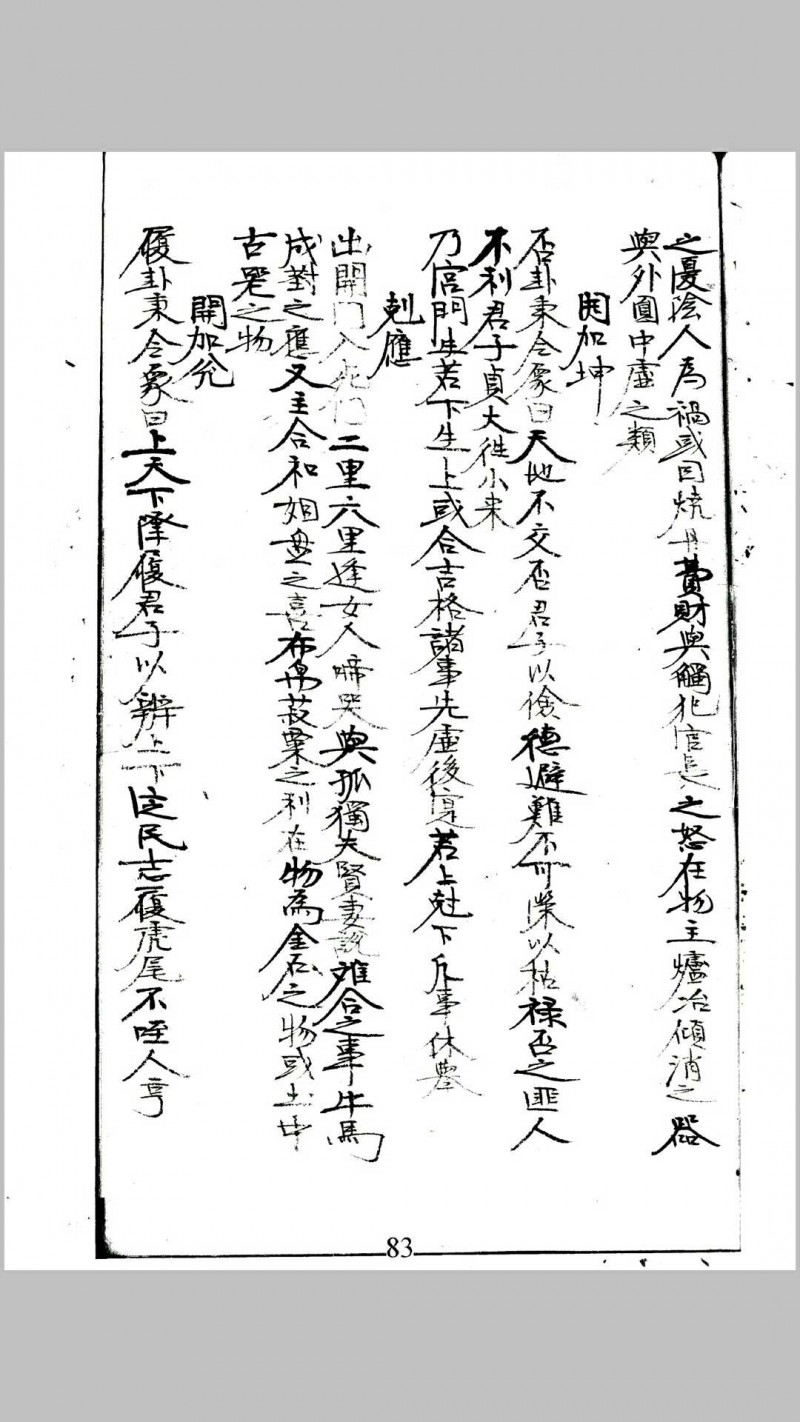 之憂陰人為禍或因燒丹費財與觸犯官長之怒在物主爐冶傾消之器
與外圓中虛之類
開加坤
否卦東合象曰天地不交否君子以儉德避難不可榮以祿否之匪人
不利君子貞大徃小来
乃宮門生若下生上或合吉格諸事先虛後寔若上尅下斥事休舉
剋應
出開門入二里六里逢女人啼哭與孤獨夫賢妻說难合之事牛馬
成對之應又主合和姻之喜布帛菽粟之利在物為金石之物或土中
古器之物
開加兌
履卦東合象曰上天下澤履君子以辨上下定民志履虎尾不咥人亨
83